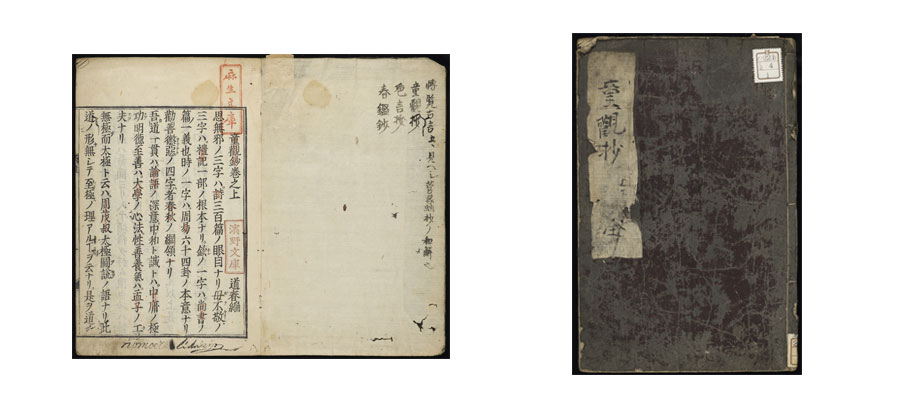 童觀抄
春鑑鈔
童觀鈔卷之上
道春編
濱野文庫
思無邪ノ三字ハ詩三百篇ノ眼目ナリ毋不敬ノ
三字ハ禮記一部ノ根本ナリ欽ノ一字ハ尚書ノ
篇一義也時ノ一字ハ周易六十四卦ノ本意ナリ
勸善懲惡ノ四字者春秋ノ綱領ナリ
吾道一貫ハ論語ノ深意中和ト誠トハ中庸ノ極
功明德至善ハ大學ノ心法性善養氣ハ孟子ノ工
夫ナリ
無極而太極ト云ハ周茂叔太極圖說ノ語ナリ此
道ノ形無シテ至極ノ理アルヿヲ云ナリ是ヲ道ト
童觀抄